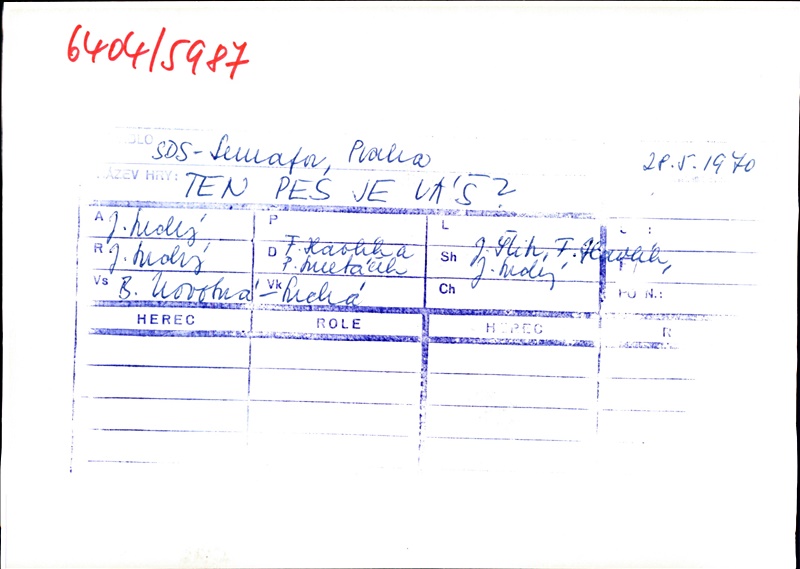 6404/5987
DLO SDS-Semafor, Praha 28.5.1970
ÁZEV HRY: TEN PES JE VÁŠ?
A J. Suchý P L :
R J. Suchý D F. Havlík a P. Smetáček Sh J. Šlitr, F. Havlík, J. Suchý
Vs B. Novotná - Suchá Vk Ch PO N.:
HEREC ROLE HEREC R